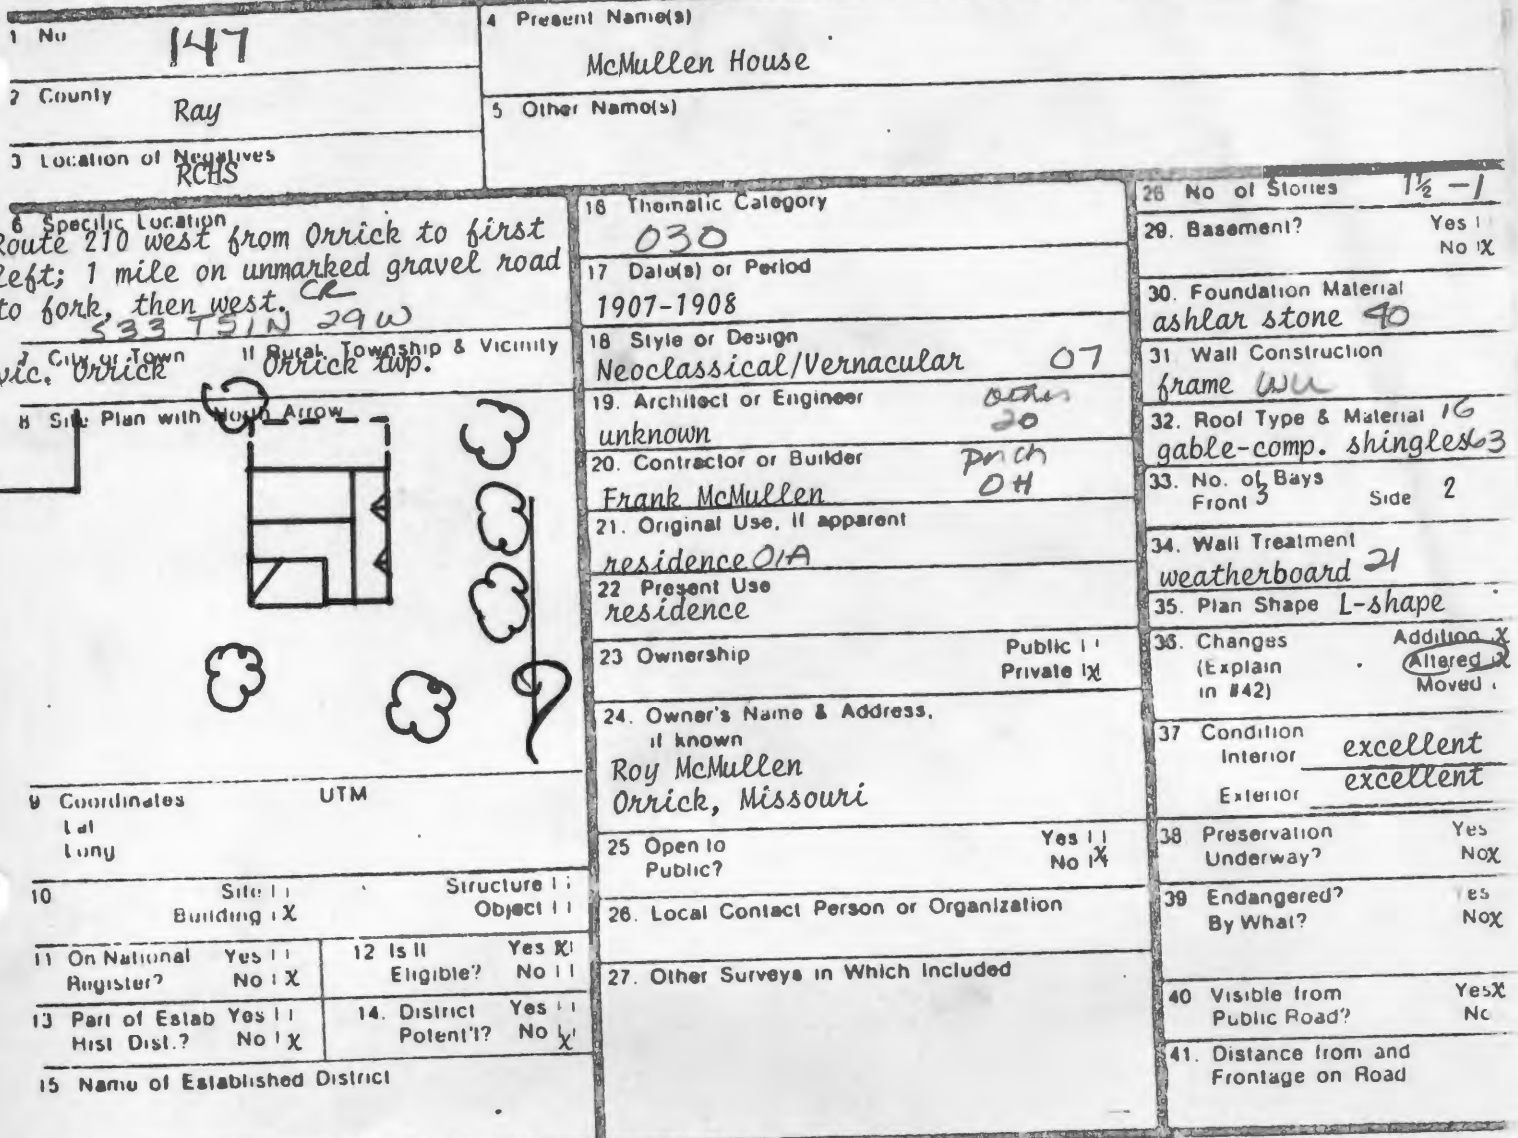 1 No 147
2 County Ray
3 Location of Negatives
RCHS
4 Present Name(s)
McMullen House
5 Other Name(s)
6 Specific Location
Route 210 west from Orrick to first
left; 1 mile on unmarked gravel road
to fork, then west. CR
S33 T51N 29W
7 City or Town If Rural, Township & Vicinity
vic. Orrick Orrick twp.
8 Site Plan with North Arrow
9 Coordinates UTM
Lat
Long
10 Site Structure
Building X Object
11 On National Register? Yes No X
12 Is It Eligible? Yes X No
13 Part of Estab Hist Dist.? Yes No X
14. District Potent'l? Yes No X
15 Name of Established District
16 Thematic Category
030
17 Date(s) or Period
1907-1908
18 Style or Design
Neoclassical/Vernacular 07
19. Architect or Engineer other
unknown 20
20. Contractor or Builder Prch
Frank McMullen OH
21. Original Use, If apparent
residence 01A
22 Present Use
residence
23 Ownership Public
Private X
24. Owner's Name & Address,
if known
Roy McMullen
Orrick, Missouri
25 Open to Yes
Public? No X
26. Local Contact Person or Organization
27. Other Surveys in Which Included
28 No of Stories 1½ -1
29. Basement? Yes
No X
30. Foundation Material
ashlar stone 40
31 Wall Construction
frame WU
32. Roof Type & Material 16
gable-comp. shingles 63
33. No. of Bays
Front 3 Side 2
34. Wall Treatment
weatherboard 21
35. Plan Shape L-shape
36. Changes Addition X
(Explain Altered X
in #42) Moved
37 Condition
Interior excellent
Exterior excellent
38 Preservation Yes
Underway? No X
39 Endangered? Yes
By What? No X
40 Visible from Yes X
Public Road? No
41. Distance from and
Frontage on Road